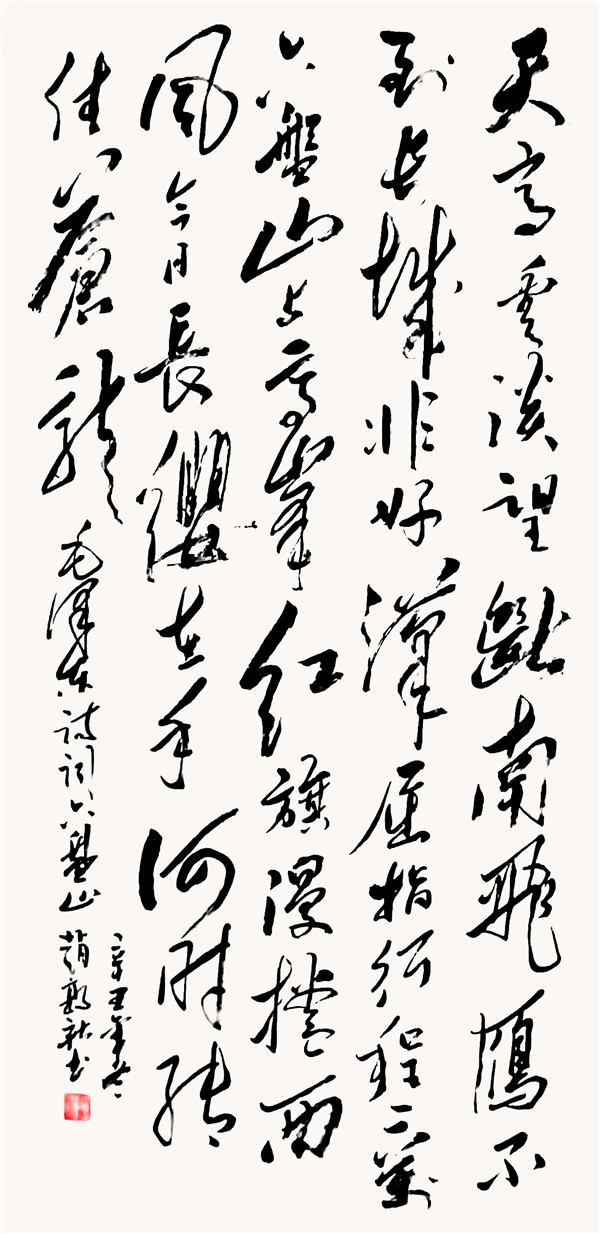 天高雲淡望斷南飛鴈不
到長城非好漢屈指行程二萬
六盤山上高峰紅旗漫捲西
風今日長纓在手何時縛
住蒼龍
毛澤東詩詞六盤山
辛丑年
趙
書